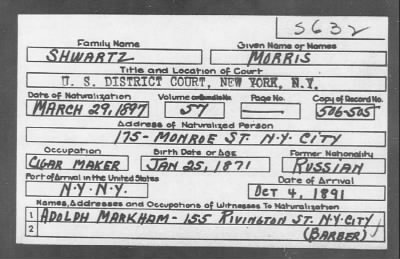 S632
Family Name Given Name or Names
SHWARTZ MORRIS
Title and Location of Court
U. S. DISTRICT COURT, NEW YORK, N.Y.
Date of Naturalization Volume or Bundle No. Page No. Copy of Record No.
MARCH 29, 1897 57 506-505
Address of Naturalized Person
175- MONROE ST. N.Y. CITY
Occupation Birth Date or Age Former Nationality
CIGAR MAKER JAN 25, 1871 RUSSIAN
Port of Arrival in the United States Date of Arrival
N.Y. N.Y. OCT 4, 1891
Names, Addresses and Occupations of Witnesses To Naturalization
1 ADOLPH MARKHAM- 155 RIVINGTON ST. N.Y. CITY
2 (BARBER)